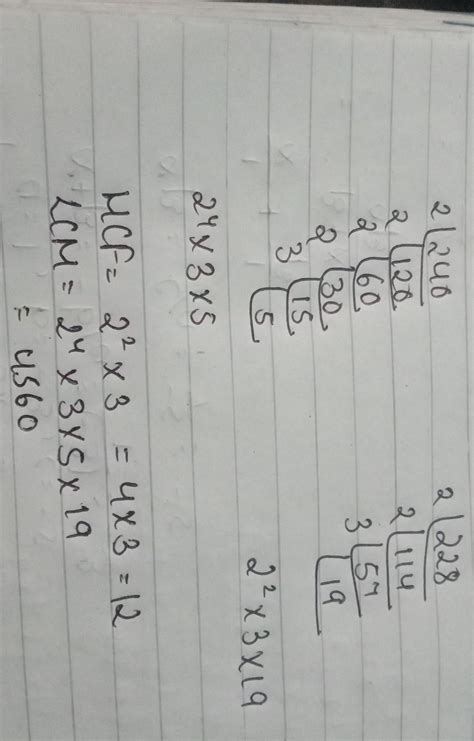 2 240
2 120
2 60
2 30
3 15
5
2 228
2 114
3 57
19
2⁴ × 3 × 5
2² × 3 × 19
HCF = 2² × 3 = 4 × 3 = 12
LCM = 2⁴ × 3 × 5 × 19
= 4560